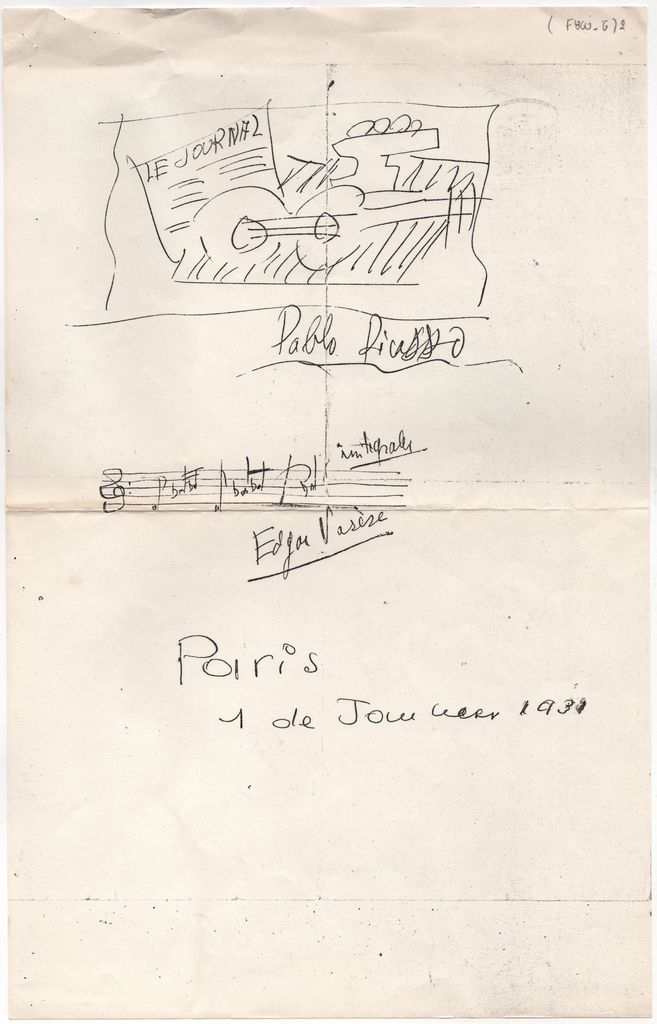 LE JOURNAL
Pablo Picasso
intégrales
Edgar Varèse
Paris
1 de Janvier 1931